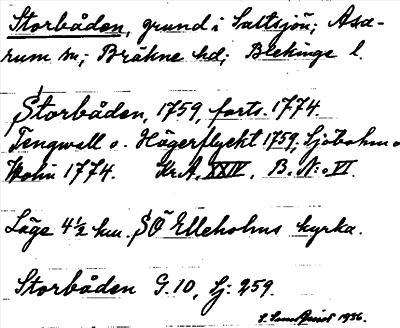 Storbåden, grund i Saltsjön; Asa-
rum sn; Bräkne hd; Blekinge l.
Storbåden, 1759, forts. 1774.
Tengwall o. Hägerflyckt 1759. Sjöbohm o
Holm 1774. Kr.A. XXIV, B. N:o VI.
Läge 4½ km. SÖ Elleholms kyrka.
Storbåden G. 10, Sj: 259.
1936.